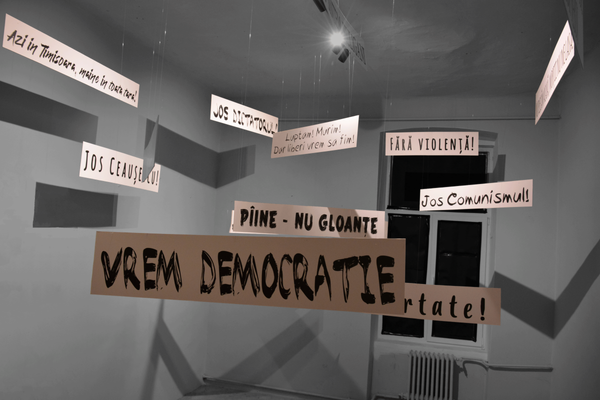 Azi în Timisoara, maine în toata tara!
JOS DICTATORUL!
Luptam! Murim!
Dar liberi vrem sa fim!
FĂRĂ VIOLENȚĂ!
JOS CEAUȘE U!
Jos Comunismul!
PÎINE - NU GLOANȚE
VREM DEMOCRAȚIE
rtate!